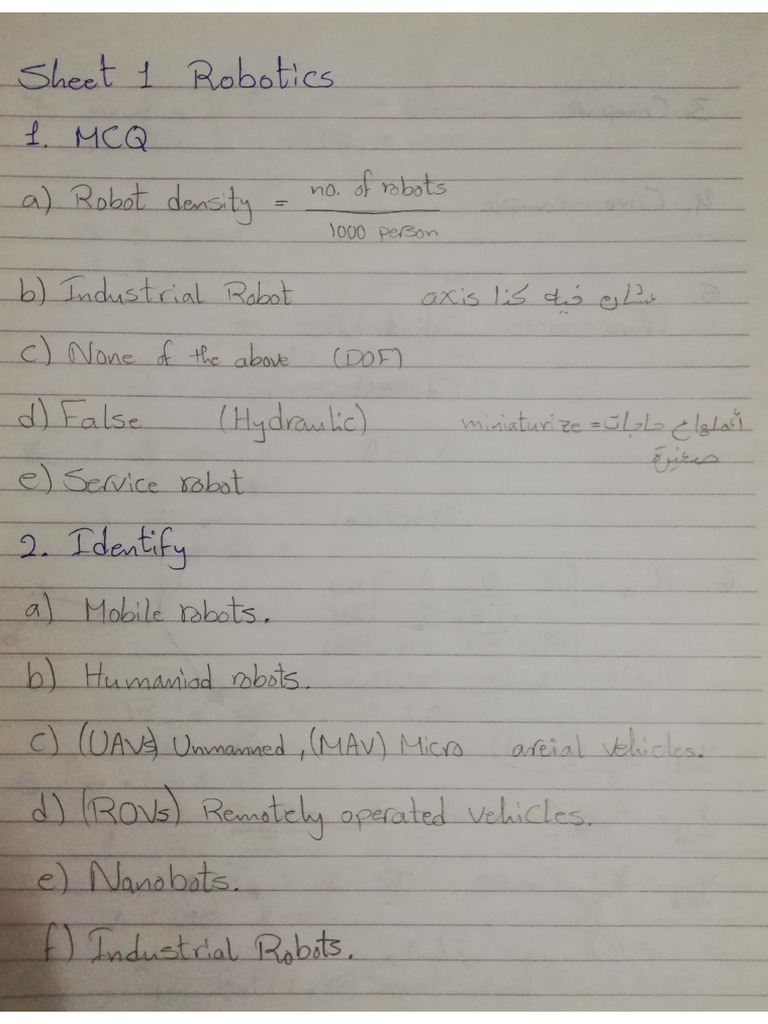 Sheet 1 Robotics
1. MCQ
a) Robot density = no. of robots
1000 person
b) Industrial Robot عشان فيه كذا axis
c) None of the above (DOF)
d) False (Hydraulic) miniaturize = أعملها حاجات
صغيرة
e) Service robot
2. Identify
a) Mobile robots.
b) Humaniod robots.
c) (UAVs) Unmanned, (MAV) Micro areial vehicles.
d) (ROVs) Remotely operated vehicles.
e) Nanobots.
f) Industrial Robots.